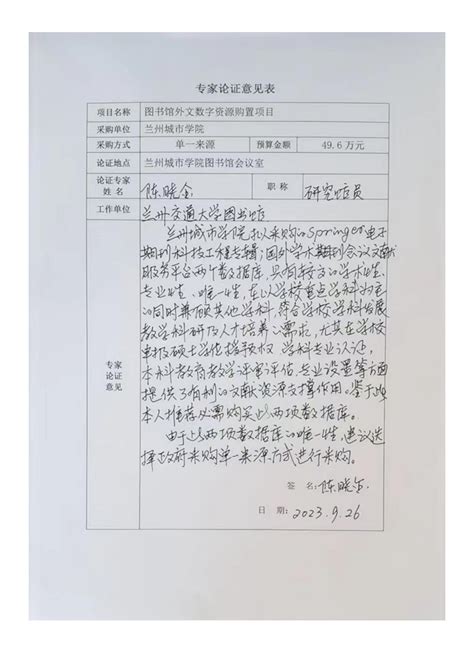 专家论证意见表
项目名称 图书馆外文数字资源购置项目
采购单位 兰州城市学院
采购方式 单一来源 预算金额 49.6万元
论证地点 兰州城市学院图书馆会议室
论证专家
姓名 陈晓金 职称 研究馆员
工作单位 兰州交通大学图书馆
专家
论证
意见
兰州城市学院拟采购的Springer电子
期刊科技工程专辑;国外学术期刊会议文献
服务平台两个数据库,具有较高的学术性、
专业性、唯一性,在以学校重点学科为主
的同时兼顾其他学科,符合学校学科发展
教学科研及人才培养的需求,尤其在学校
申报硕士学位授予权、学科专业认证,
本科教育教学评审评估,专业设置等方面
提供了有利的文献资源支撑作用。鉴于此
本人推荐必需购买此两项数据库。
由于此两项数据库的唯一性,建议选
择政府采购单一来源方式进行采购。
签名:陈晓金
日期:2023.9.26